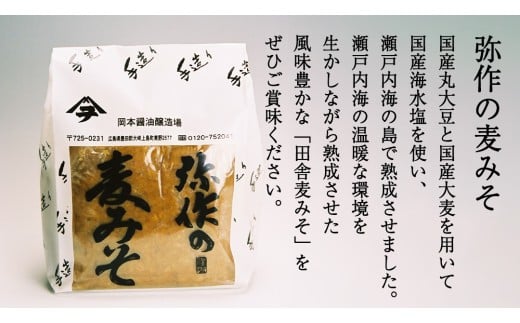 弥作の麦みそ
国産丸大豆と国産大麦を用いて
国産海水塩を使い、
瀬戸内海の島で熟成させました。
瀬戸内海の温暖な環境を
生かしながら熟成させた
風味豊かな「田舎麦みそ」を
ぜひご賞味ください。
手造り
手造り
手造り
手造り
手造り
岡本醤油醸造場
〒725-0231 広島県豊田郡大崎上島町東野2577
0120-75204
弥作の
麦みそ
手造り
手造り
手造り